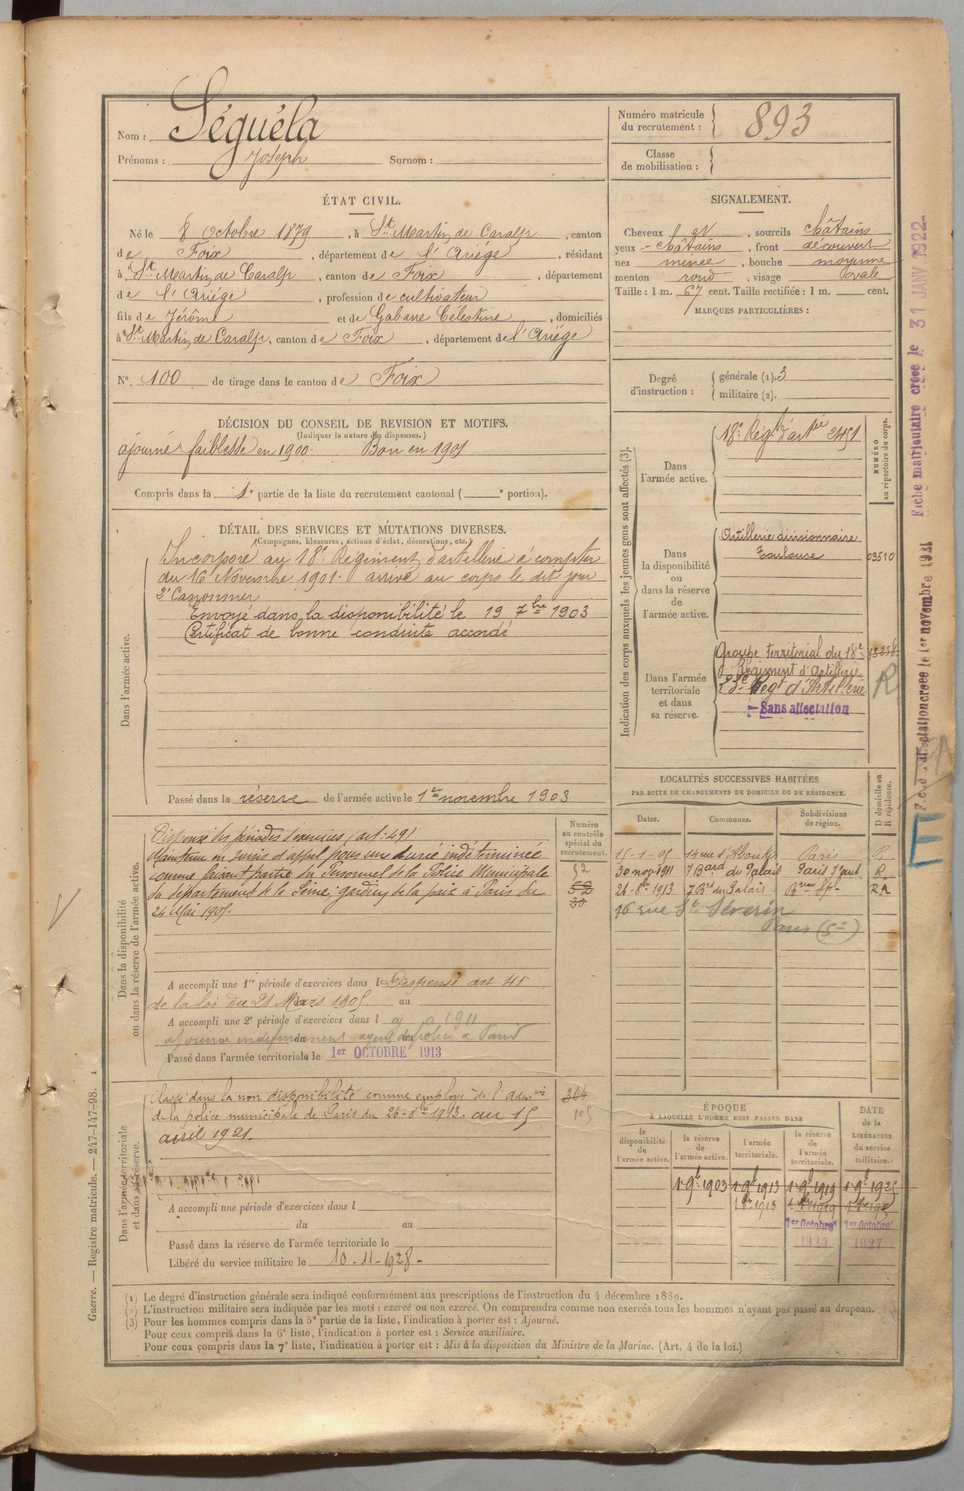 Nom : Séguéla
Prénoms : Joseph Surnom :
Numéro matricule du recrutement : 893
Classe de mobilisation :
ÉTAT CIVIL.
Né le 8 Octobre 1879, à St Martin de Caralp, canton
de Foix, département de l'Ariége, résidant
à St Martin de Caralp, canton de Foix, département
de l'Ariége, profession de cultivateur
fils de Jérôme et de Gabarre Célestine, domiciliés
à St Martin de Caralp, canton de Foix, département de l'Ariége
N° 100 de tirage dans le canton de Foix
SIGNALEMENT.
Cheveux sourcils châtains
yeux châtains, front découvert
nez mince, bouche moyenne
menton rond, visage ovale
Taille : 1 m. 67 cent. Taille rectifiée : 1 m. cent.
MARQUES PARTICULIÈRES :
Degré d'instruction : générale (1). 3
militaire (2).
DÉCISION DU CONSEIL DE REVISION ET MOTIFS.
(Indiquer la nature des dispenses.)
ajourné faiblesse en 1900. Bon en 1901
Compris dans la 1e partie de la liste du recrutement cantonal ( e portion).
DÉTAIL DES SERVICES ET MUTATIONS DIVERSES.
(Campagnes, blessures, actions d'éclat, décorations, etc.)
Dans l'armée active.
Incorporé au 18e Régiment d'artillerie à compter
du 16 Novembre 1901. arrivé au corps le dit jour
2e Canonnier
Envoyé dans la disponibilité le 19 7bre 1903
Certificat de bonne conduite accordé
Passé dans la réserve de l'armée active le 1er novembre 1903
Indication des corps auxquels les jeunes gens sont affectés (3).
NUMÉRO au répertoire du corps.
Dans l'armée active.
18e Régt d'artie 2451
Dans la disponibilité ou dans la réserve de l'armée active.
Artillerie divisionnaire
Toulouse
03510
Dans l'armée territoriale et dans sa réserve.
Groupe territorial du 18e
Régiment d'Artillerie
Regt d'Artillerie
Sans affectation
R
LOCALITÉS SUCCESSIVES HABITÉES
PAR SUITE DE CHANGEMENTS DE DOMICILE OU DE RÉSIDENCE.
Dates. Communes. Subdivisions de région. D domicile ou R résidence.
15-1-05 14 rue d'Aboukir Paris R.
30 nov 1911 7 Bard du Palais Paris R.
26-8bre 1913 7 Bd du Palais RA
16 rue St Séverin
Paris (5e)
Dans la disponibilité ou dans la réserve de l'armée active.
Numéro au contrôle spécial du recrutement.
52
52
30
Dispensé des périodes d'exercices (art. 49)
Maintenu en sursis d'appel pour une durée indéterminée
comme faisant partie du Personnel de la Police Municipale
du département de la Seine, gardien de la paix à Paris du
24 Mai 1905.
A accompli une 1re période d'exercices dans l Dispensé art 41
de la loi du 21 Mars 1905 au
A accompli une 2e période d'exercices dans l 1911
ajourné indéfiniment agent de police à Paris
Passé dans l'armée territoriale le 1er OCTOBRE 1913
Dans l'armée territoriale et dans sa réserve.
Classé dans la non disponibilité comme employé de l'admon
de la police municipale de Paris du 26-8bre 1913. au 15
avril 1921.
304
105
A accompli une période d'exercices dans l
du au
Passé dans la réserve de l'armée territoriale le
Libéré du service militaire le 10-11-1928-
ÉPOQUE
À LAQUELLE L'HOMME DOIT PASSER DANS
DATE de la LIBÉRATION du service militaire.
la disponibilité de l'armée active. la réserve de l'armée active. l'armée territoriale. la réserve de l'armée territoriale.
1-9b 1903 1-9b 1913 1-9b 1919 1-9b 1925
1er Octobre 1er Octobre
1927
(1) Le degré d'instruction générale sera indiqué conformément aux prescriptions de l'instruction du 4 décembre 1889.
(2) L'instruction militaire sera indiquée par les mots : exercé ou non exercé. On comprendra comme non exercés tous les hommes n'ayant pas passé au drapeau.
(3) Pour les hommes compris dans la 5e partie de la liste, l'indication à porter est : Ajourné.
Pour ceux compris dans la 6e liste, l'indication à porter est : Service auxiliaire.
Pour ceux compris dans la 7e liste, l'indication à porter est : Mis à la disposition du Ministre de la Marine. (Art. 4 de la loi.)
Guerre. — Registre matricule. — 247-147-98. 1
Fiche matriculaire créée le 31 JANV 1922